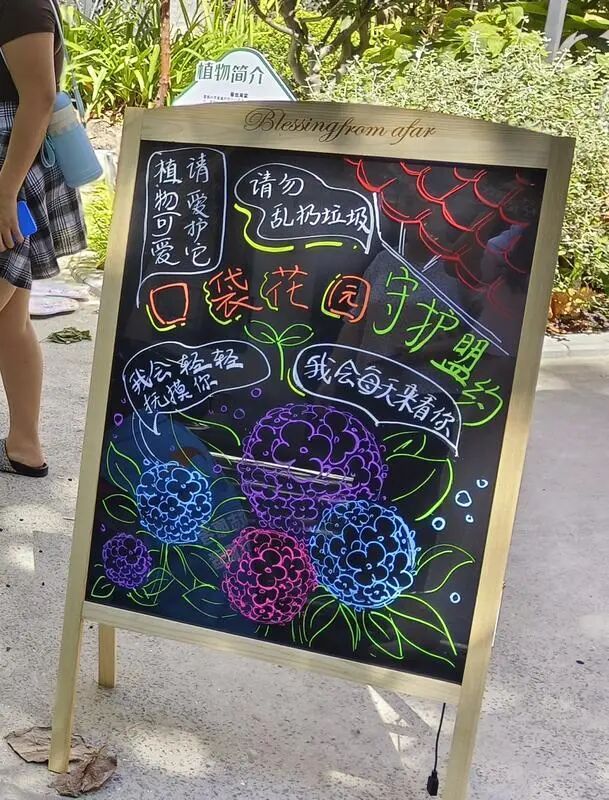 植物简介
Blessing from afar
植物可爱
请爱护它
请勿
乱扔垃圾
口袋花园守护盟约
我会轻轻
抚摸你
我会每天来看你